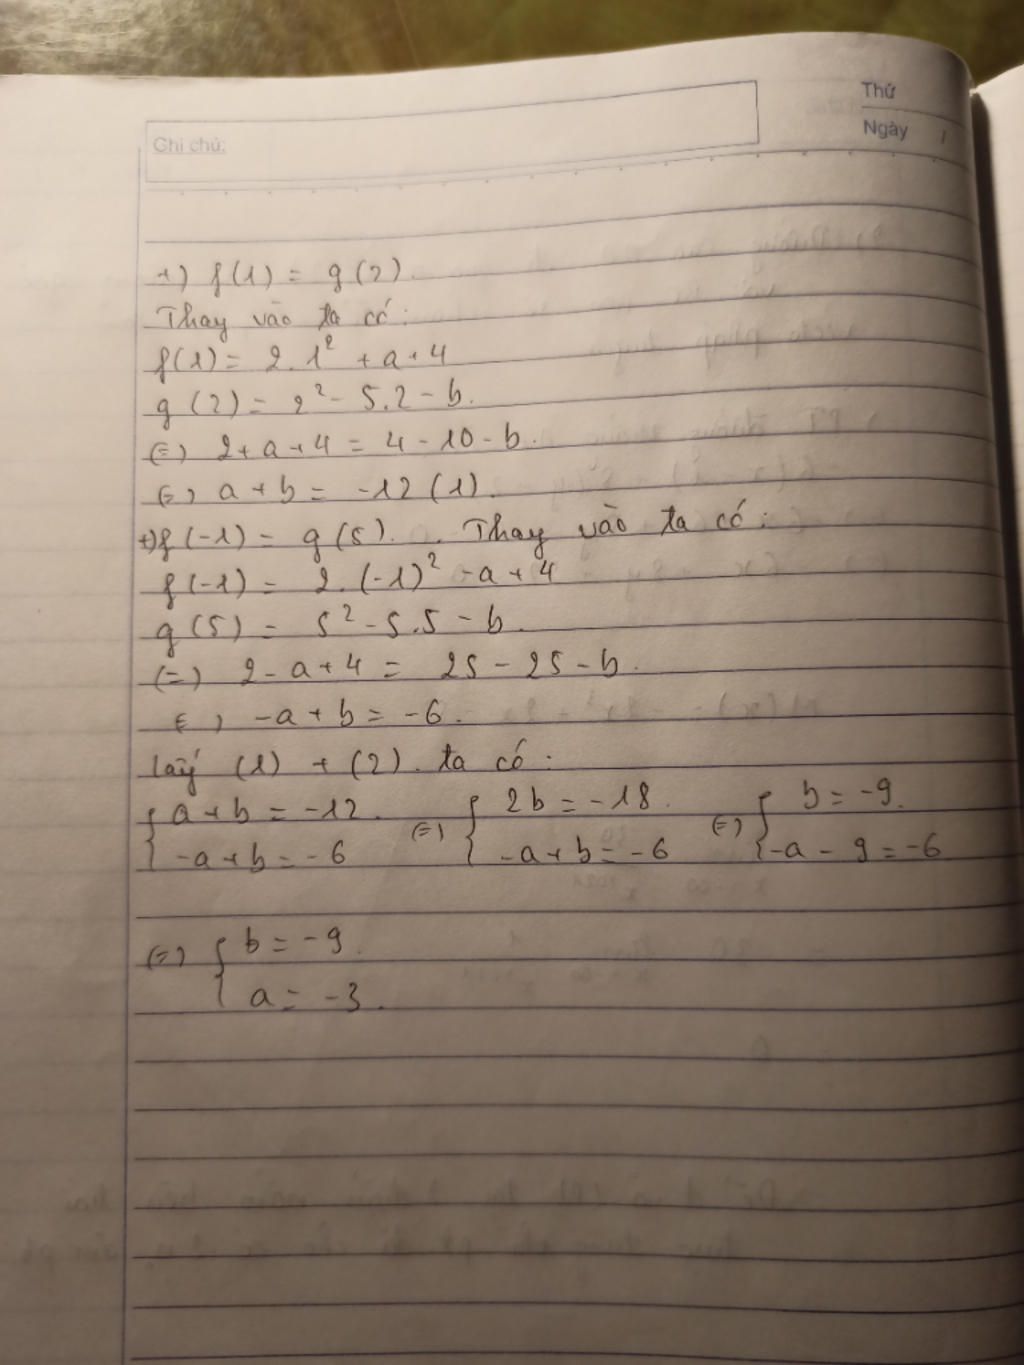 Thứ
Ghi chú:
Ngày
+) f(1) = g(2).
Thay vào ta có:
f(1) = 2.1² + a + 4
g(2) = 2² - 5.2 - b.
(=) 2 + a + 4 = 4 - 10 - b.
(=) a + b = -12 (1).
+) f(-1) = g(5). Thay vào ta có:
f(-1) = 2.(-1)² - a + 4
g(5) = 5² - 5.5 - b.
(=) 2 - a + 4 = 25 - 25 - b.
(=) -a + b = -6.
lấy (1) + (2). ta có:
{ a + b = -12. (=) { 2b = -18. (=) { b = -9.
{ -a + b = -6 { -a + b = -6 { -a - 9 = -6
(=) { b = -9.
{ a = -3.